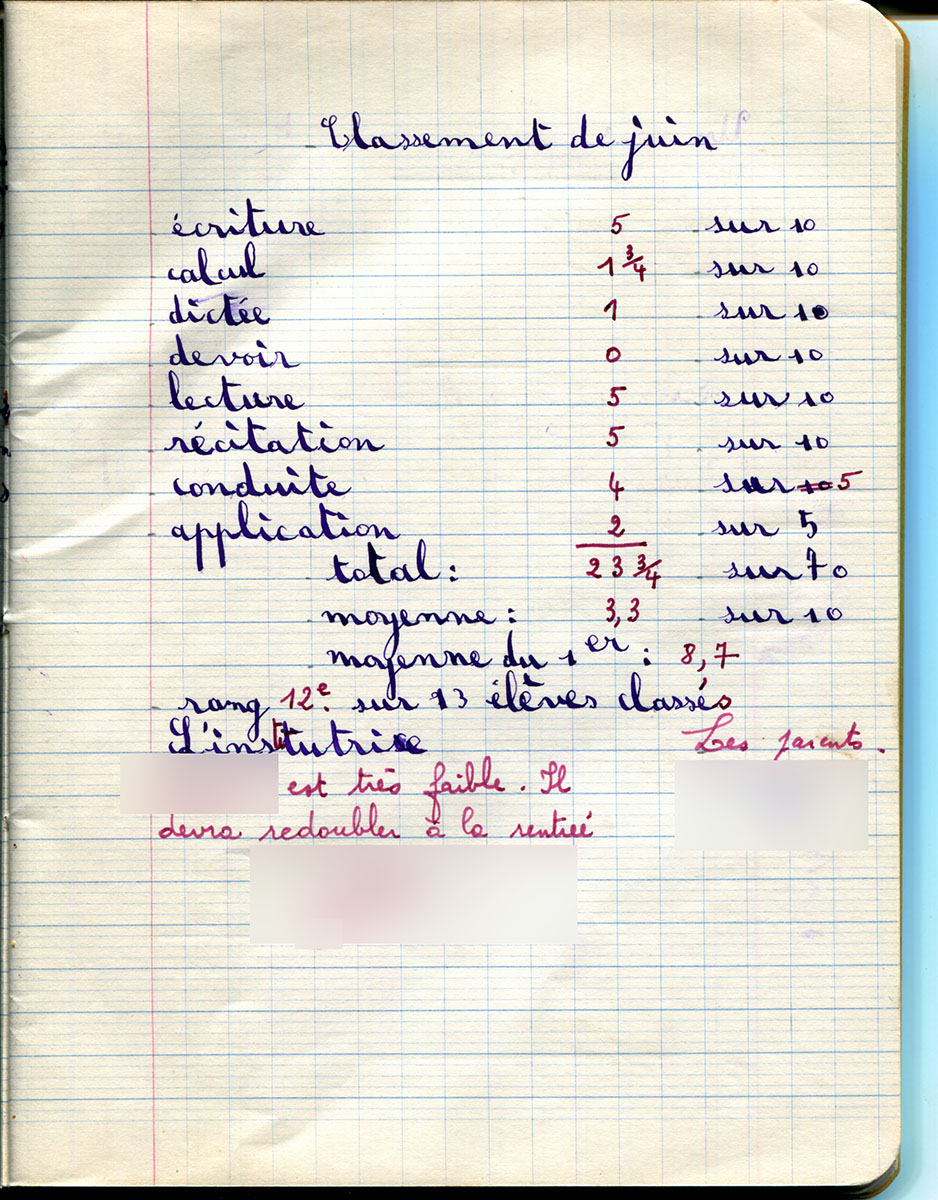 Classement de juin
écriture 5 sur 10
calcul 1 3/4 sur 10
dictée 1 sur 10
devoir 0 sur 10
lecture 5 sur 10
récitation 5 sur 10
conduite 4 sur 10 5
application 2 sur 5
total : 23 3/4 sur 70
moyenne : 3,3 sur 10
moyenne du 1er : 8,7
rang 12e sur 13 élèves classés
L'institutrice Les parents.
est très faible. Il
devra redoubler à la rentrée